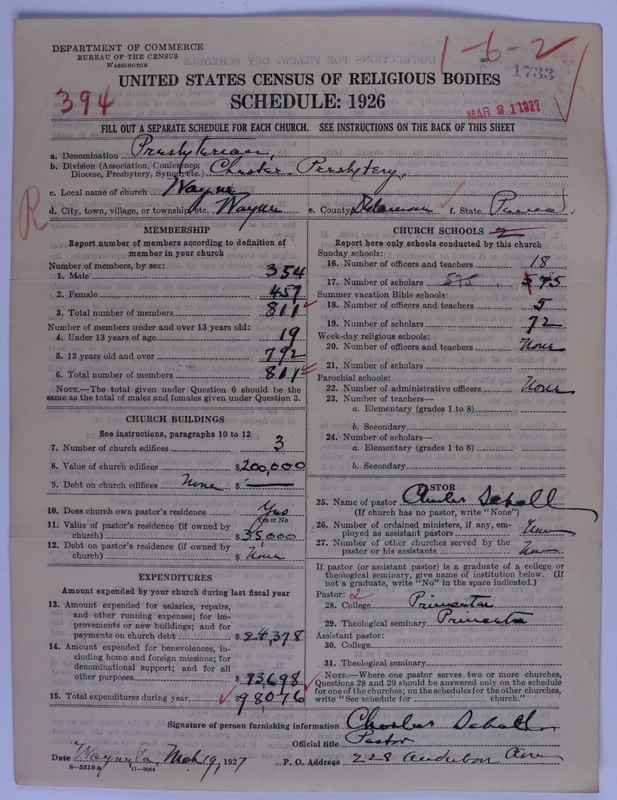 DEPARTMENT OF COMMERCE
BUREAU OF THE CENSUS
WASHINGTON
1-6-2
1733
UNITED STATES CENSUS OF RELIGIOUS BODIES
394
SCHEDULE: 1926
MAR 21 1927
FILL OUT A SEPARATE SCHEDULE FOR EACH CHURCH. SEE INSTRUCTIONS ON THE BACK OF THIS SHEET
a. Denomination Presbyterian,
b. Division (Association, Conference, Diocese, Presbytery, Synod, etc.) Chester Presbytery,
c. Local name of church Wayne
R
d. City, town, village, or township, etc. Wayne e. County Delaware f. State Penna
MEMBERSHIP
Report number of members according to definition of member in your church
Number of members, by sex:
1. Male 354
2. Female 457
3. Total number of members 811
Number of members under and over 13 years old:
4. Under 13 years of age 19
5. 13 years old and over 792
6. Total number of members 811
NOTE.—The total given under Question 6 should be the same as the total of males and females given under Question 3.
CHURCH BUILDINGS
See instructions, paragraphs 10 to 12
7. Number of church edifices 3
8. Value of church edifices $200,000
9. Debt on church edifices None $
10. Does church own pastor's residence Yes
Yes or No
11. Value of pastor's residence (if owned by church) $35,000
12. Debt on pastor's residence (if owned by church) $None
EXPENDITURES
Amount expended by your church during last fiscal year
13. Amount expended for salaries, repairs, and other running expenses; for improvements or new buildings; and for payments on church debt $24,378
14. Amount expended for benevolences, including home and foreign missions; for denominational support; and for all other purposes $73698
15. Total expenditures during year $98076
CHURCH SCHOOLS 2
Report here only schools conducted by this church
Sunday schools:
16. Number of officers and teachers 18
17. Number of scholars 575 575
Summer vacation Bible schools:
18. Number of officers and teachers 5
19. Number of scholars 72
Week-day religious schools:
20. Number of officers and teachers None
21. Number of scholars
Parochial schools:
22. Number of administrative officers None
23. Number of teachers—
a. Elementary (grades 1 to 8)
b. Secondary
24. Number of scholars—
a. Elementary (grades 1 to 8)
b. Secondary
PASTOR
25. Name of pastor Charles Schall
(If church has no pastor, write "None")
26. Number of ordained ministers, if any, employed as assistant pastors None
27. Number of other churches served by the pastor or his assistants None
If pastor (or assistant pastor) is a graduate of a college or theological seminary, give name of institution below. (If not a graduate, write "No" in the space indicated.)
Pastor: 2
28. College Princeton
29. Theological seminary Princeton
Assistant pastor:
30. College
31. Theological seminary
NOTE.—Where one pastor serves two or more churches, Questions 28 and 29 should be answered only on the schedule for one of the churches; on the schedules for the other churches, write "See schedule for church."
Signature of person furnishing information Charles Schall
Official title Pastor
Date Wayne Pa, Mch 19, 1927 P. O. Address 228 Audubon Ave
8—5518a 11—9054